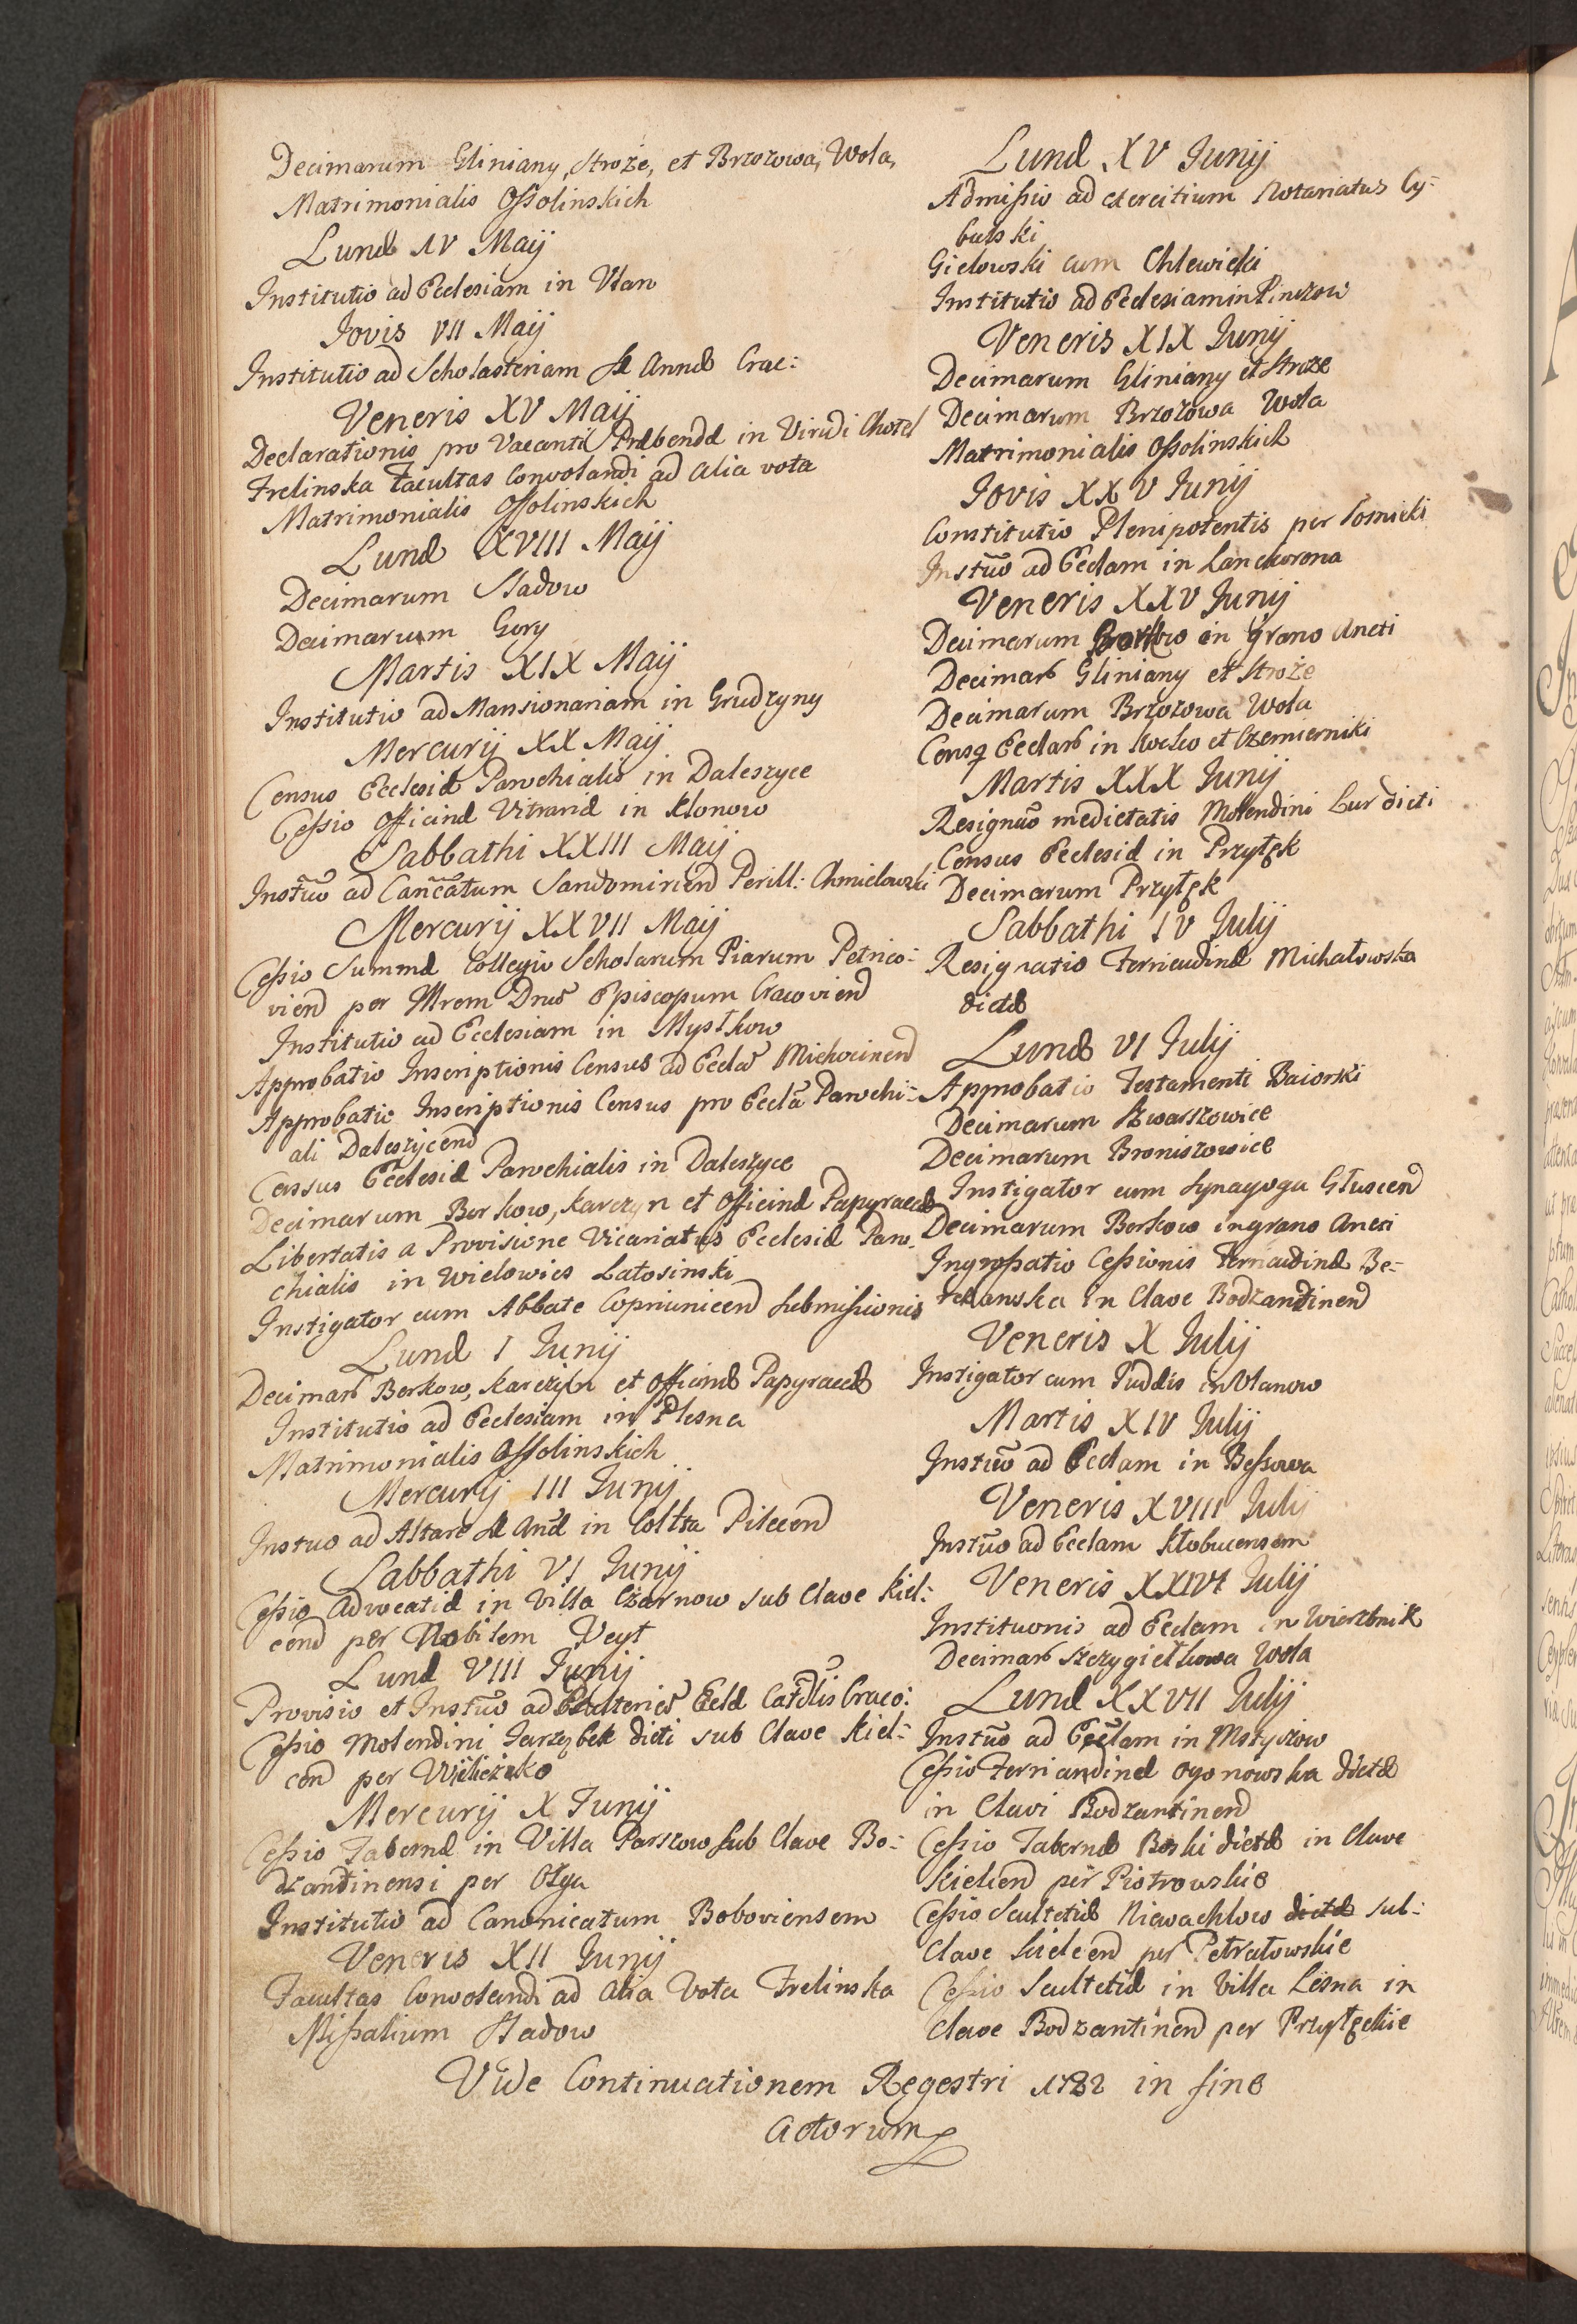 Decimarum Gliniany, Stroże, et Brzozowa, Wola,
Matrimonialis Ossolinskich
Lunæ IV Maij
Institutio ad Ecclesiam in Ulan
Jovis VII Maij
Institutio ad Scholasteriam S Annæ Crac:
Veneris XV Maij
Declarationis pro Vacanti Præbendæ in Viridi Chotel
Frelinska Facultas Convolandi ad alia vota
Matrimonialis Ossolinskich
Lunæ XVIII Maij
Decimarum Stadow
Decimarum Gory
Martis XIX Maij
Institutio ad Mansionariam in Grudzyny
Mercurij XX Maij
Census Ecclesiæ Parochialis in Daleszyce
Cessio Officinæ Vitrariæ in Klonow
Sabbathi XXIII Maij
Instũo ad Cancãtum Sandomirien Perill: Chmielowski
Mercurij XXVII Maij
Cessio Summæ Collegio Scholarum Piarum Petrico:
vien per Illrem Dnum Episcopum Cracovien
Institutio ad Ecclesiam in Mystkow
Approbatio Inscriptionis Census ad Ecclã Miechovinen
Approbatio Inscriptionis Census pro Ecclã Parochi:
ali Daleszycen
Census Ecclesiæ Parochialis in Daleszyce
Decimarum Borkow, Karczyn et Officinæ Papyraceæ
Libertatis a Provisione Vicariatus Ecclesiæ Paro:
chialis in Wielowies Latosinski
Instigator cum Abbate Copriunicen Submissionis
Lunæ I Junij
Decimarũ Borkow, Karczyn et Officinæ Papyraceæ
Institutio ad Ecclesiam in Plesna
Matrimonialis Ossolinskich
Mercurij III Junij
Instuo ad Altare S Annæ in Collta Pilecen
Sabbathi VI Junij
Cessio Advocatiæ in Villa Czarnow sub Clave Kiel:
cen per Nobilem Veyt
Lunæ VIII Junij
Provisio et Instũo ad Eccl Catdlis Craco:
Cessio Molendini Jarzębek dicti sub Clave Kiel:
cen per
Mercurij X Junij
Cessio Tabernæ in Villa Parszow sub Clave Bo:
dzantinensi per Ołga
Institutio ad Canonicatum Boboviensem
Veneris XII Junij
Facultas Convolandi ad Alia Vota Frelinska
Missalium Stadow
Lunæ XV Junij
Admissio ad exercitium Notariatus Cy:
bulski
Gielowski cum Chlewicki
Institutio ad Ecclesiam in Pinczow
Veneris XIX Junij
Decimarum Gliniany et Stroze
Decimarum Brzozowa Wola
Matrimonialis Ossolinskich
Jovis XXV Junij
Constitutio Plenipotentis per Łosnicki
Instũo ad Ecclam in Lanckorona
Veneris XXV Junij
Decimarum Borkow in grano Aneti
Decimarũ Gliniany et Stroże
Decimarum Brzozowa Wola
Censq Ecclarũ in Kocko et Czemierniki
Martis XXX Junij
Resignũo medietatis Molendini Lur dicti
Census Ecclesiæ in Przyłęk
Decimarum Przyłęk
Sabbathi IV Julij
Resignatio Ferricudinæ Michałowska
dictæ
Lunæ VI Julij
Approbatio Testamenti Baiorski
Decimarum Szwarszowice
Decimarum Broniszowice
Instigator cum Synagoga Głuscen
Decimarum Borkow in grano Aneti
Ingrossatio Cessionis Ferricudinæ Be:
rezanska in Clave Bodzantinen
Veneris X Julij
Instigator cum Juddis in Ulanow
Martis XIV Julij
Instũo ad Ecclam in Bessowa
Veneris XVIII Julij
Instũo ad Ecclam Kłobucensem
Veneris XXIV Julij
Instituonis ad Ecclam in Wierzbnik
Decimarũ Szczygiełkowa Wola
Lunæ XXVII Julij
Instũo ad Ecclam in Mstyczow
Cessio Ferricudinæ Ogonowska dictæ
in Clavi Bodzantinen
Cessio Tabernæ Boski dictæ in Clave
Kielcen per Piotrowskie
Cessio Scultetiæ Niewachlow dictæ sub:
Clave Kielcen per Petratowskie
Cessio Scultetiæ in Villa Lesna in
Clave Bodzantinen per Przyłęckie
Vide Continuationem Regestri 1782 in fine
Actorum